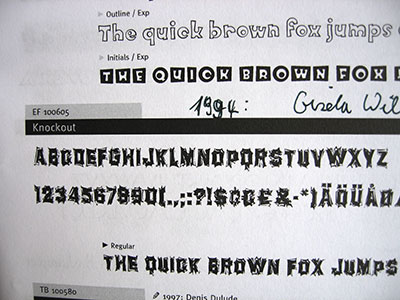 Outline / Exp
The quick brown fox jumps
Initials / Exp
THE QUICK BROWN FOX
EF 100605
1994: Gisela Wil
Knockout
ABCDEFGHIJKLMNOPQRSTUVWXYZ
1234567890(.,;:?!$¢£&-*)ÄÖÜÅØ
Regular
THE QUICK BROWN FOX JUMPS
TB 100580
1997: Denis Dulude